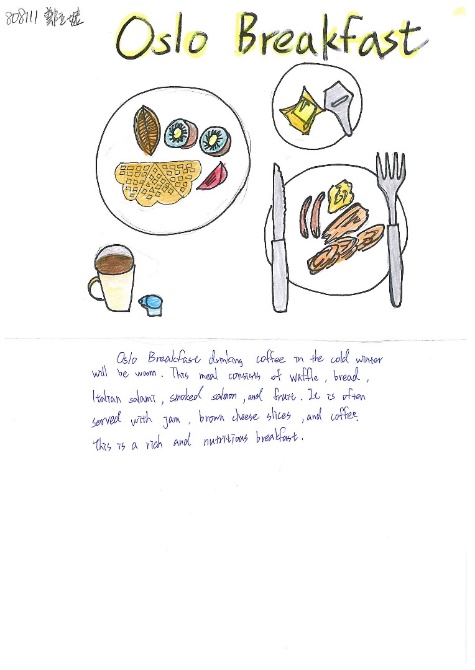 808111 鄭
Oslo Breakfast
Oslo Breakfast drinking coffee in the cold winter
will be warm. This meal consists of waffle, bread,
Italian salami, smoked salmon, and fruit. It is often
served with jam, brown cheese slices, and coffee.
This is a rich and nutritious breakfast.